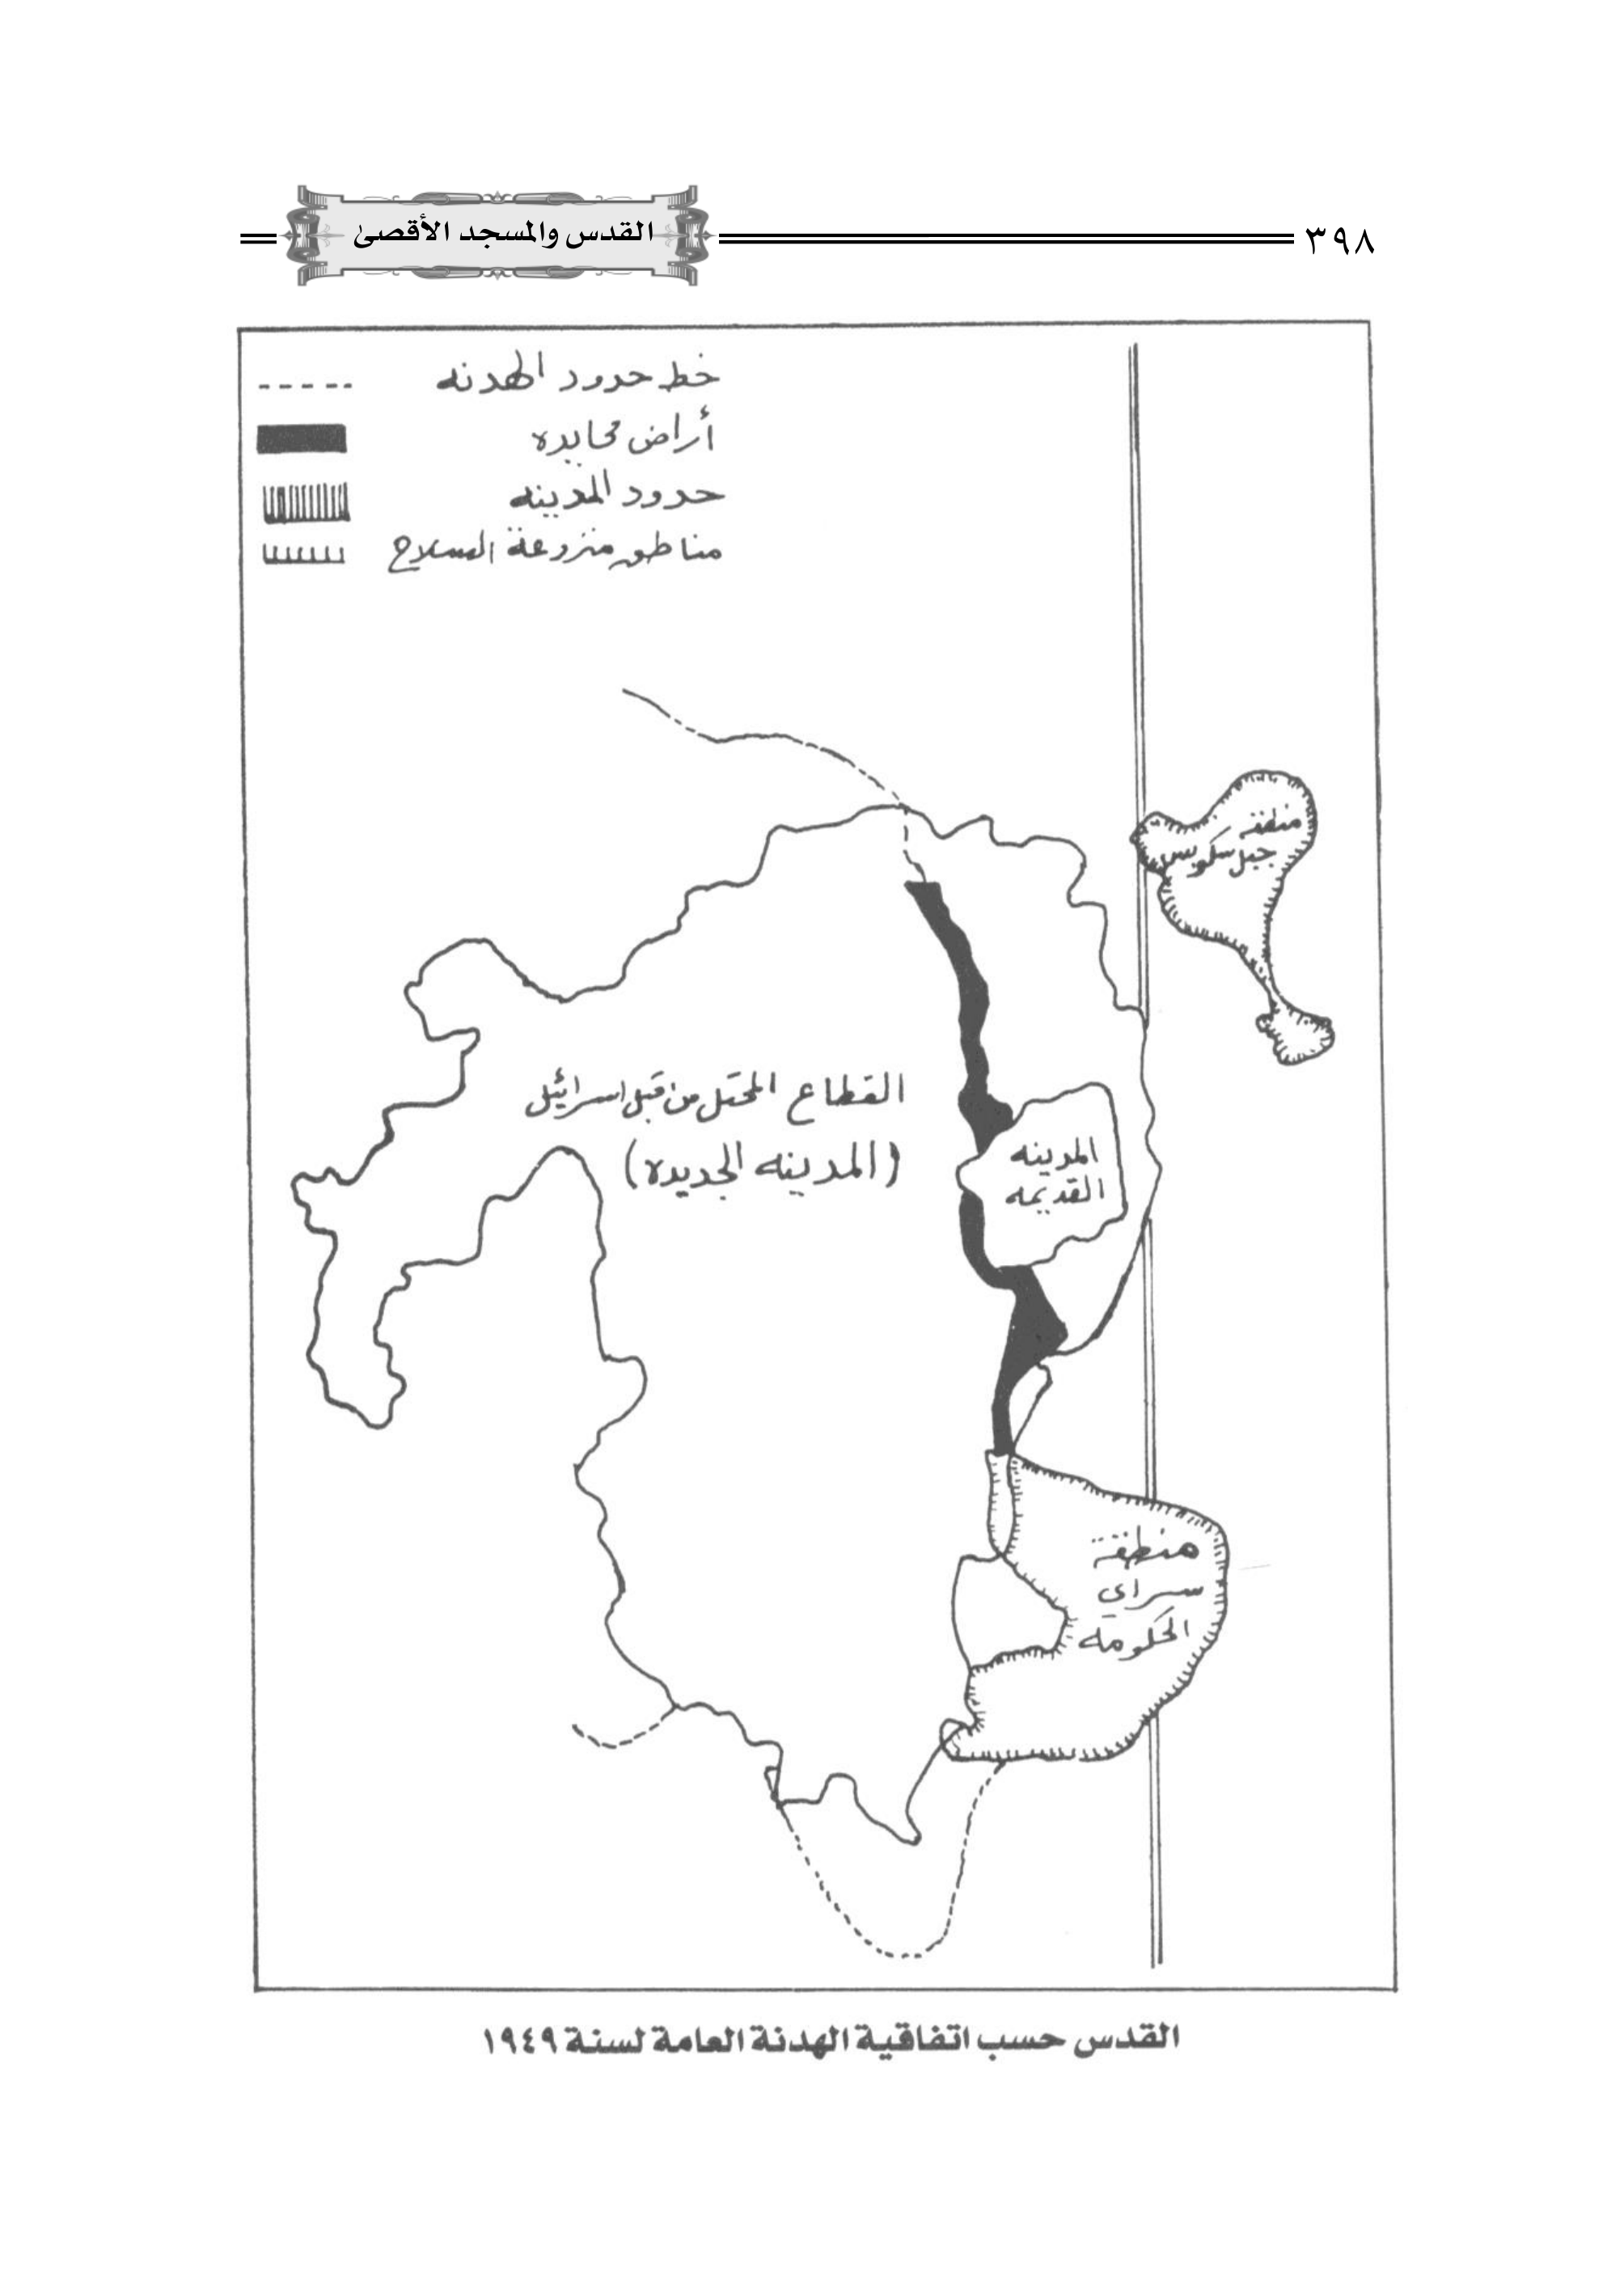 ٣٩٨
القدس والمسجد الأقصى
خط حدود الهدنه
أراض محايده
حدود المدينه
مناطق منزوعة السلاح
منطقة
جبل سكوبس
القطاع المحتل من قبل اسرائيل
(المدينه الجديده)
المدينه
القديمه
منطقة
سراي
الحكومة
القدس حسب اتفاقية الهدنة العامة لسنة ١٩٤٩